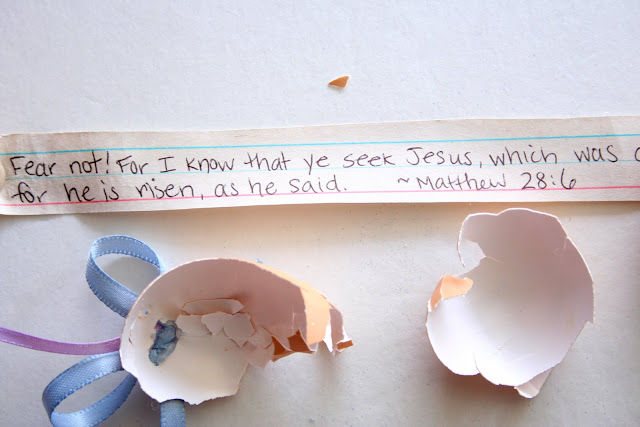 Fear not! For I know that ye seek Jesus, which was
for he is risen, as he said. ~Matthew 28:6